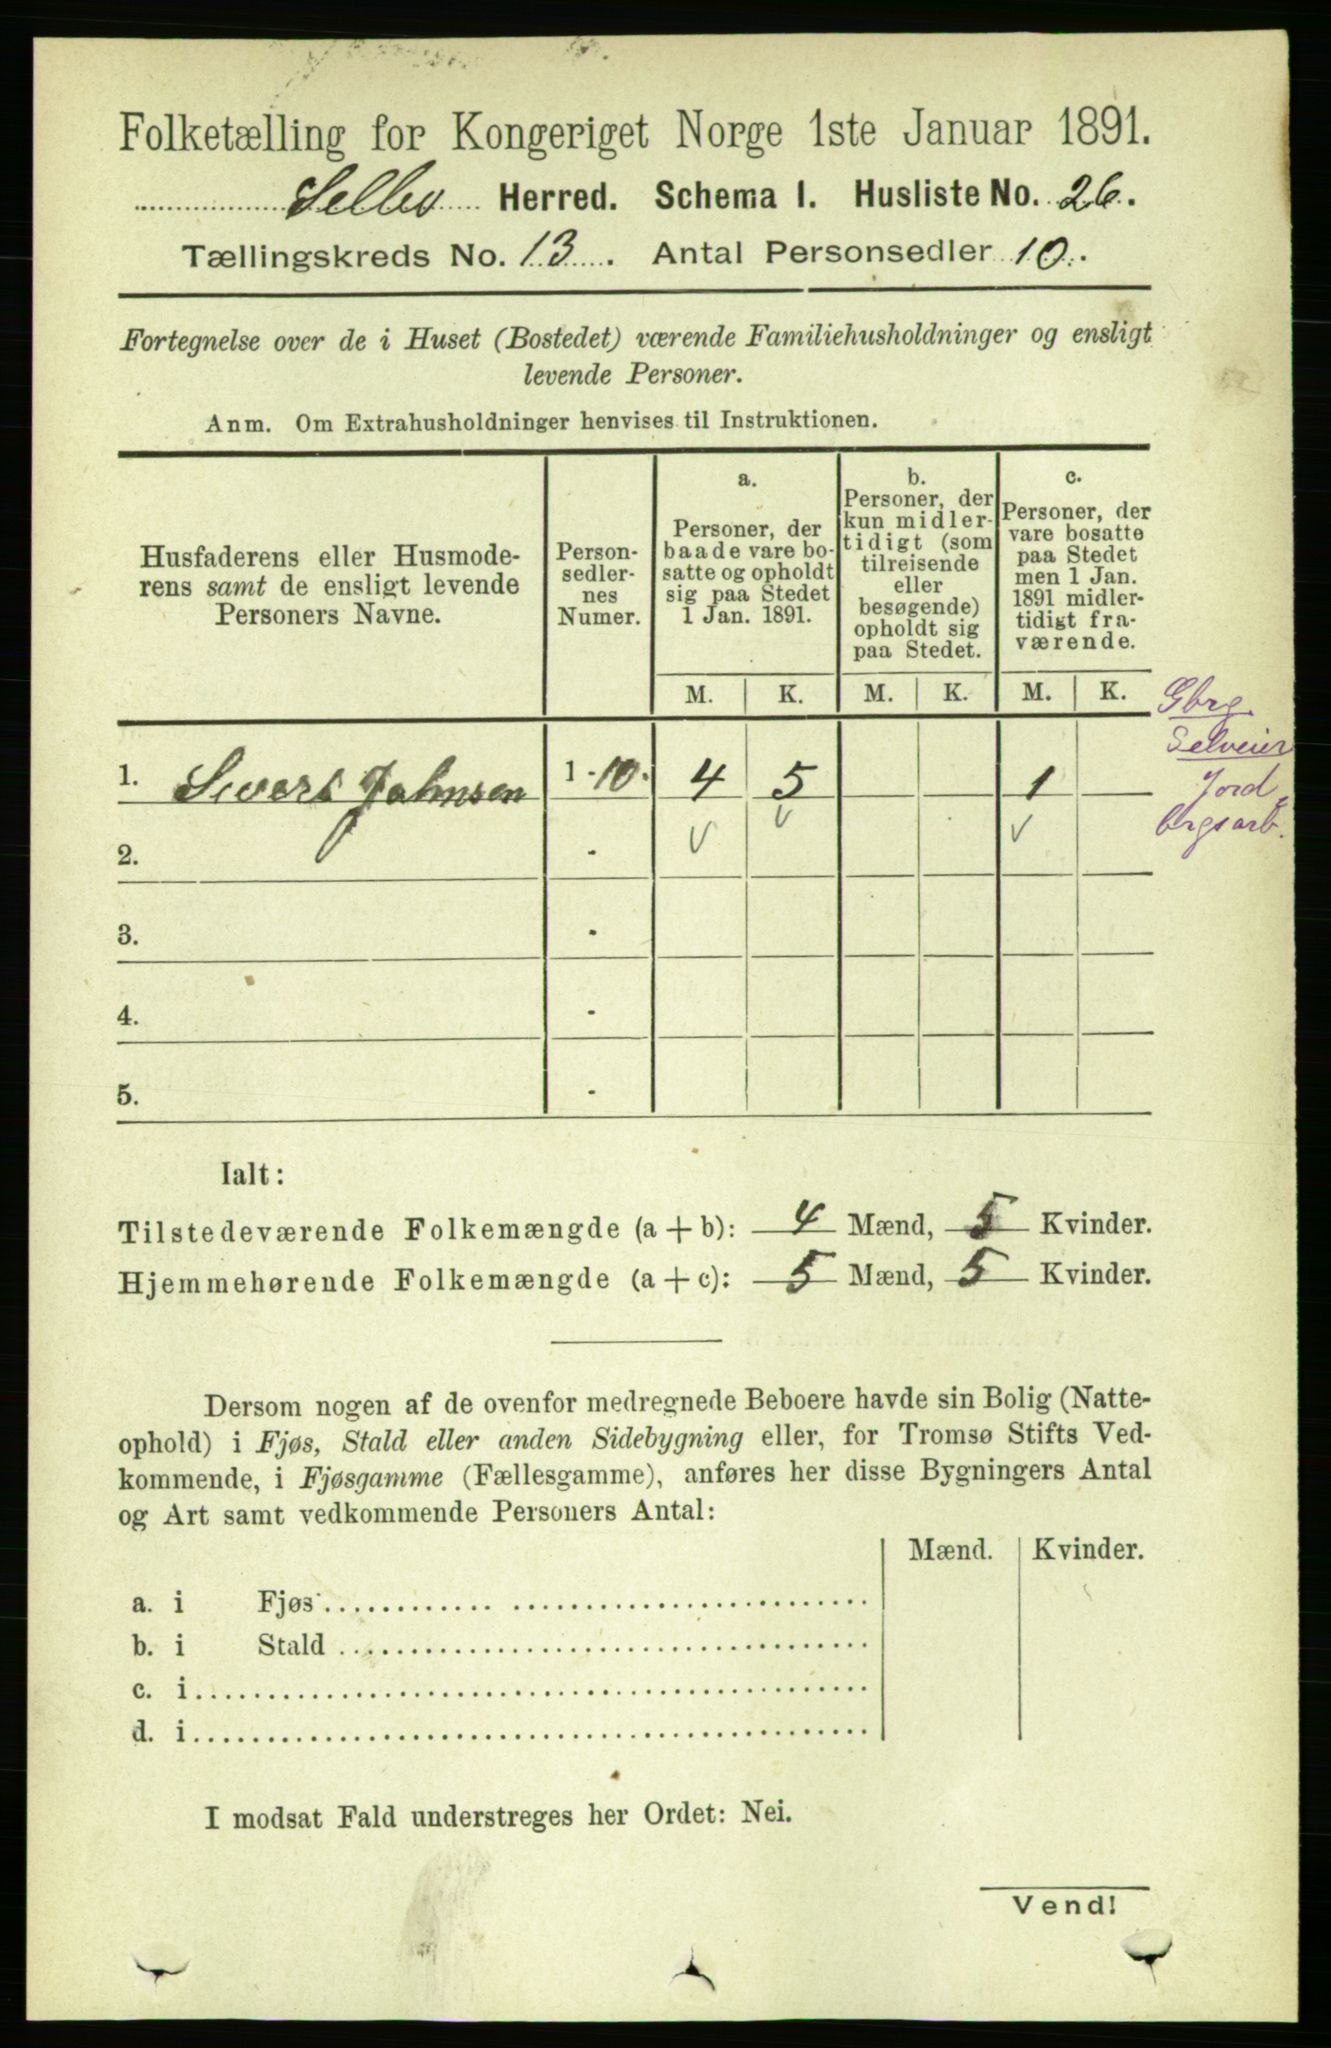 Folketælling for Kongeriget Norge 1ste Januar 1891.
Selbu Herred. Schema I. Husliste No. 26.
Tællingskreds No. 13. Antal Personsedler 10.
Fortegnelse over de i Huset (Bostedet) værende Familiehusholdninger og ensligt
levende Personer.
Anm. Om Extrahusholdninger henvises til Instruktionen.
Husfaderens eller Husmode-
rens samt de ensligt levende
Personers Navne.
Person-
sedler-
nes
Numer.
a.
Personer, der
baade vare bo-
satte og opholdt
sig paa Stedet
1 Jan. 1891.
b.
Personer, der
kun midler-
tidigt (som
tilreisende
eller
besøgende)
opholdt sig
paa Stedet.
c.
Personer, der
vare bosatte
paa Stedet
men 1 Jan.
1891 midler-
tidigt fra-
værende.
M. K. M. K. M. K.
Gbrg
Selveier
Jord
brgsarb.
1. Sivert Johnsen 1-10. 4 5 1
2. -
3. -
4. -
5. -
Ialt:
Tilstedeværende Folkemængde (a + b): 4 Mænd, 5 Kvinder.
Hjemmehørende Folkemængde (a + c): 5 Mænd, 5 Kvinder.
Dersom nogen af de ovenfor medregnede Beboere havde sin Bolig (Natte-
ophold) i Fjøs, Stald eller anden Sidebygning eller, for Tromsø Stifts Ved-
kommende, i Fjøsgamme (Fællesgamme), anføres her disse Bygningers Antal
og Art samt vedkommende Personers Antal:
Mænd. Kvinder.
a. i Fjøs
b. i Stald
c. i
d. i
I modsat Fald understreges her Ordet: Nei.
Vend!